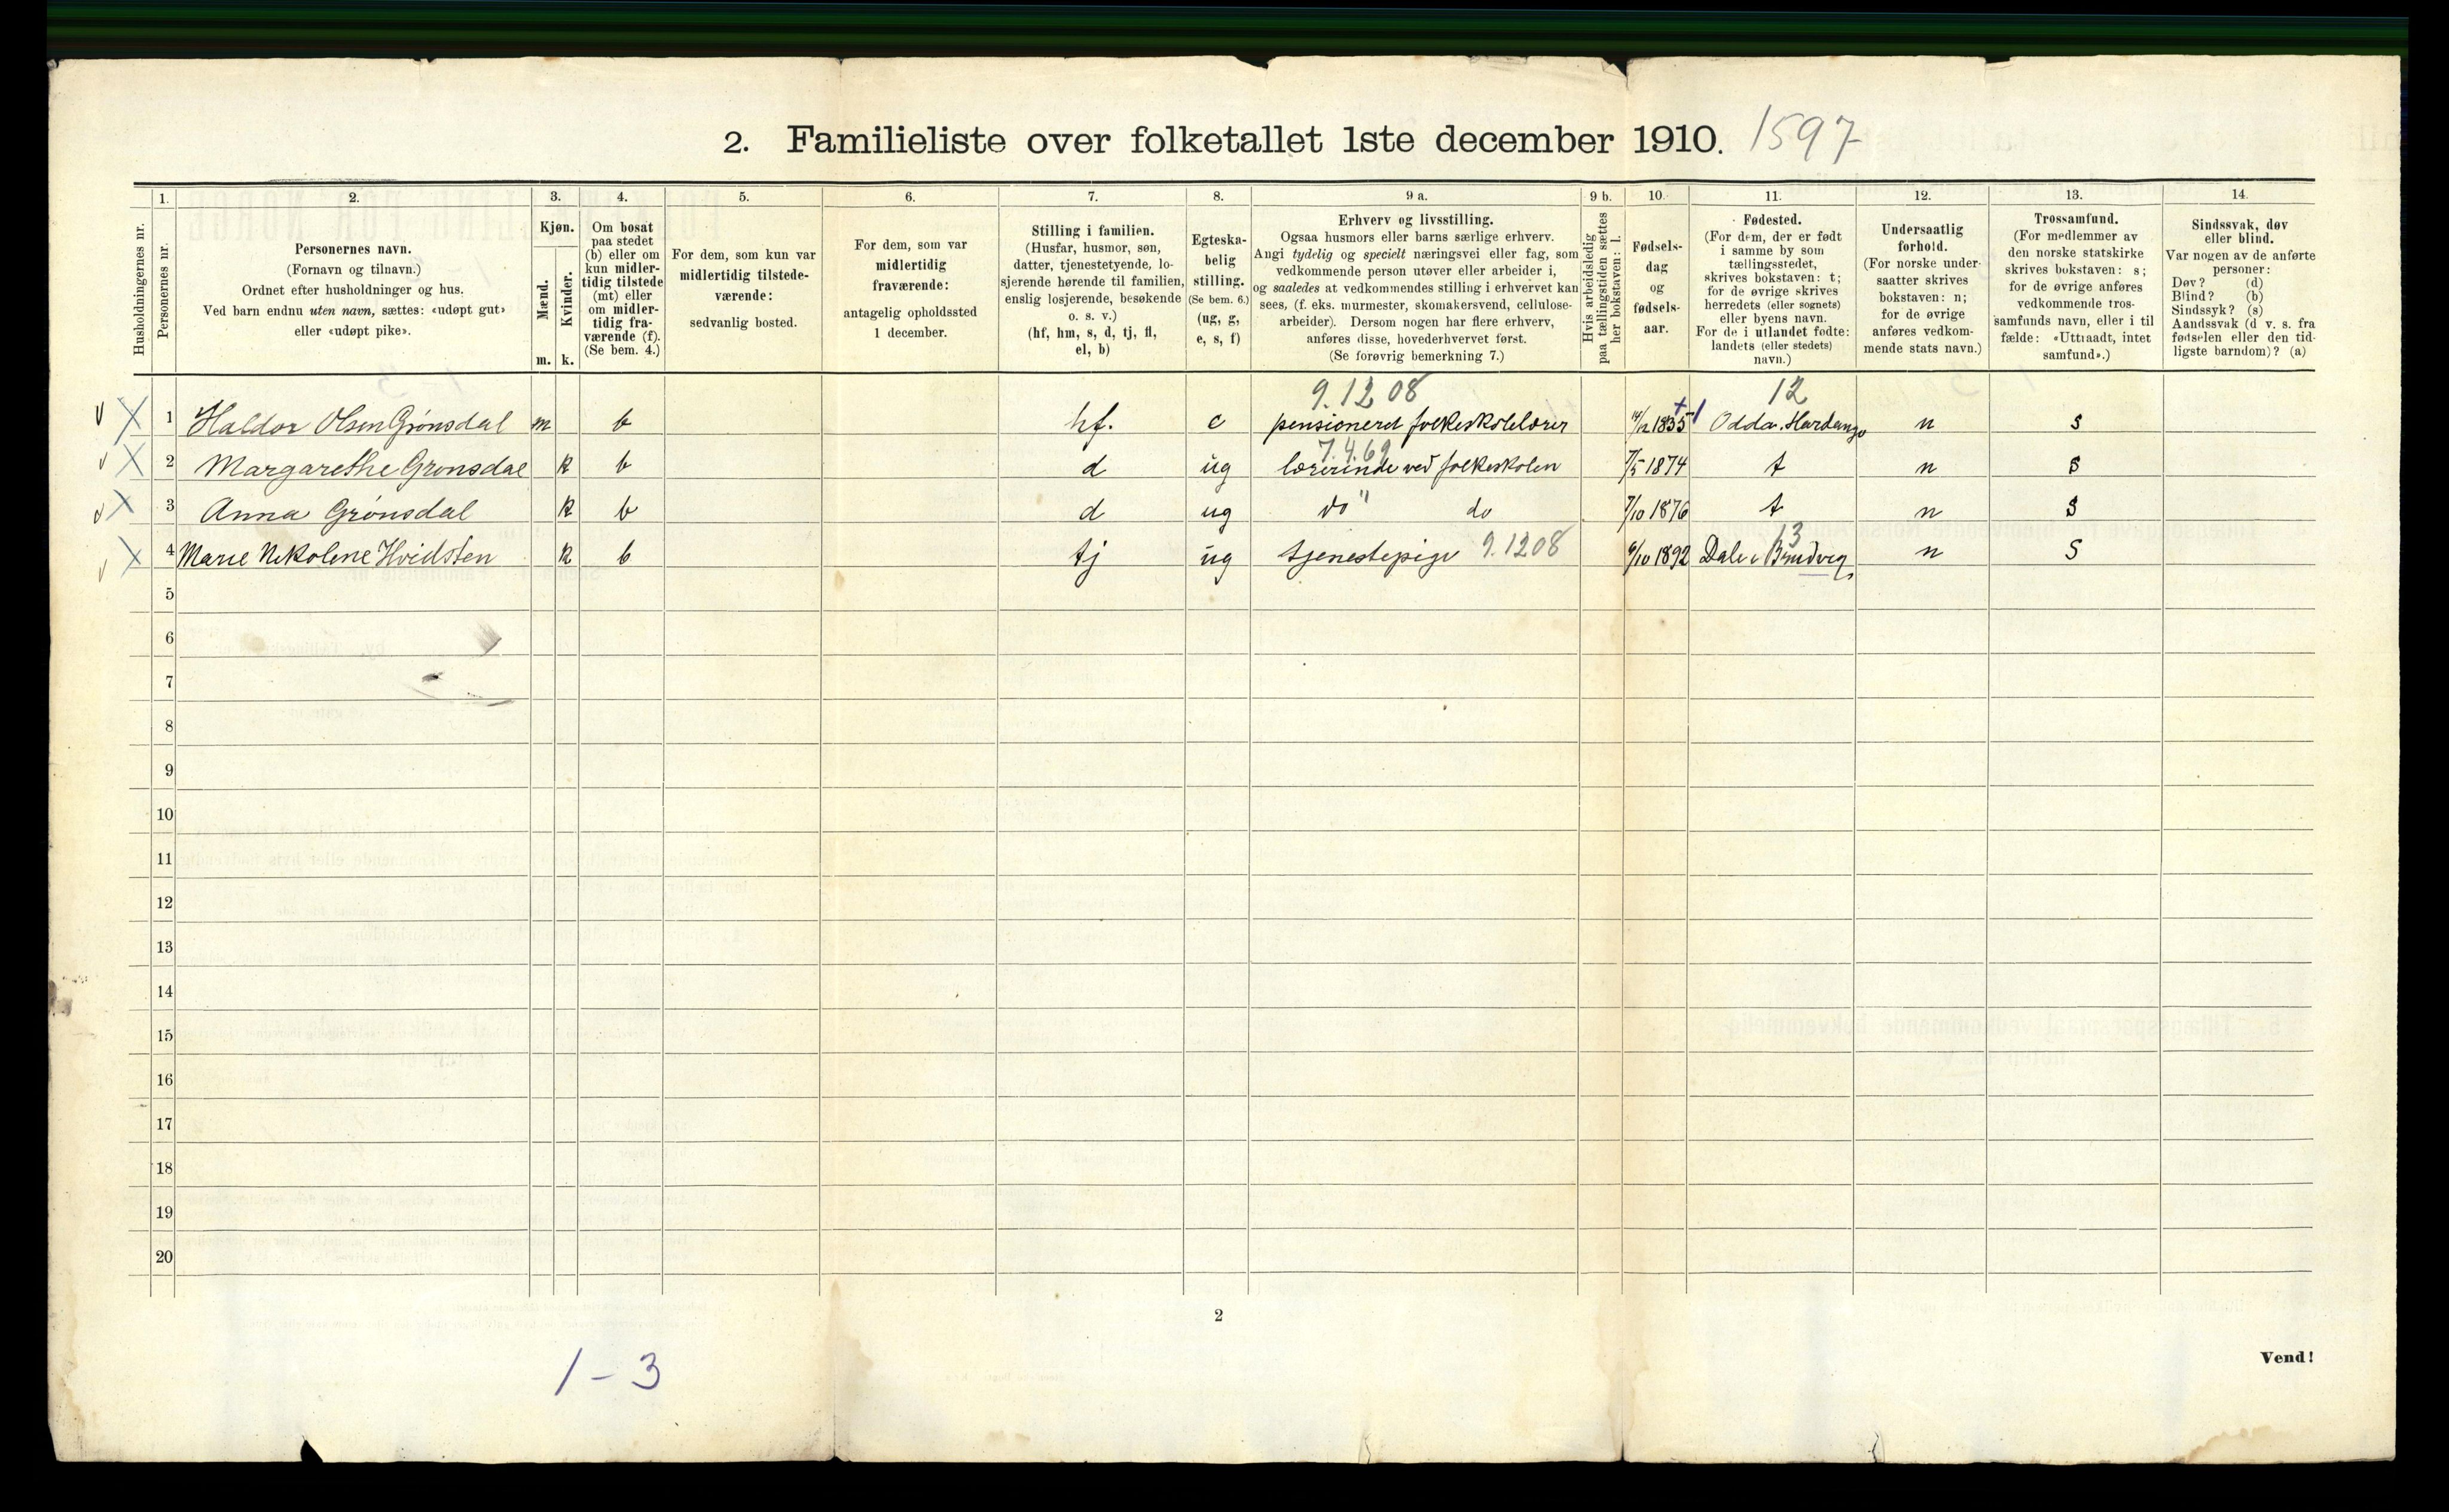 2. Familieliste over folketallet 1ste december 1910. 1597
Husholdningernes nr.
1.
Personernes nr.
2.
Personernes navn.
(Fornavn og tilnavn.)
Ordnet efter husholdninger og hus.
Ved barn endnu uten navn, sættes: «udøpt gut»
eller «udøpt pike».
3.
Kjøn.
Mænd.
Kvinder.
m. k.
4.
Om bosat
paa stedet
(b) eller om
kun midler-
tidig tilstede
(mt) eller
om midler-
tidig fra-
værende (f).
(Se bem. 4.)
5.
For dem, som kun var
midlertidig tilstede-
værende:
sedvanlig bosted.
6.
For dem, som var
midlertidig
fraværende:
antagelig opholdssted
1 december.
7.
Stilling i familien.
(Husfar, husmor, søn,
datter, tjenestetyende, lo-
sjerende hørende til familien,
enslig losjerende, besøkende
o. s. v.)
(hf, hm, s, d, tj, fl,
el, b)
8.
Egteska-
belig
stilling.
(Se bem. 6.)
(ug, g,
e, s, f)
9 a.
Erhverv og livsstilling.
Ogsaa husmors eller barns særlige erhverv.
Angi tydelig og specielt næringsvei eller fag, som
vedkommende person utøver eller arbeider i,
og saaledes at vedkommendes stilling i erhvervet kan
sees, (f. eks. murmester, skomakersvend, cellulose-
arbeider). Dersom nogen har flere erhverv,
anføres disse, hovederhvervet først.
(Se forøvrig bemerkning 7.)
9 b.
Hvis arbeidsledig
paa tællingstiden sættes
her bokstaven: l.
10.
Fødsels-
dag
og
fødsels-
aar.
11.
Fødested.
(For dem, der er født
i samme by som
tællingsstedet,
skrives bokstaven: t;
for de øvrige skrives
herredets (eller sognets)
eller byens navn.
For de i utlandet fødte:
landets (eller stedets)
navn.)
12.
Undersaatlig
forhold.
(For norske under-
saatter skrives
bokstaven: n;
for de øvrige
anføres vedkom-
mende stats navn.)
13.
Trossamfund.
(For medlemmer av
den norske statskirke
skrives bokstaven: s;
for de øvrige anføres
vedkommende tros-
samfunds navn, eller i til
fælde: «Uttraadt, intet
samfund».)
14.
Sindssvak, døv
eller blind.
Var nogen av de anførte
personer:
Døv? (d)
Blind? (b)
Sindssyk? (s)
Aandssvak (d v. s. fra
fødselen eller den tid-
ligste barndom)? (a)
9.12 08 12
1 Haldor Olsen Grønsdal m b hf. e pensioneret folkeskolelærer 14/12 1835 Odda. Hardanger n s
7.4.69
2 Margarethe Grønsdal k b d ug lærerinde ved folkeskolen 7/5 1874 t n s
3 Anna Grønsdal k b d ug do " do 7/10 1876 t n s
13
4 Marie Nikolene Hvidsten k b tj ug tjenestepige 9.12 08 6/10 1892 Dale i Bruvig n s
5
6
7
8
9
10
11
12
13
14
15
16
17
18
19
20
2
Vend!
1 - 3